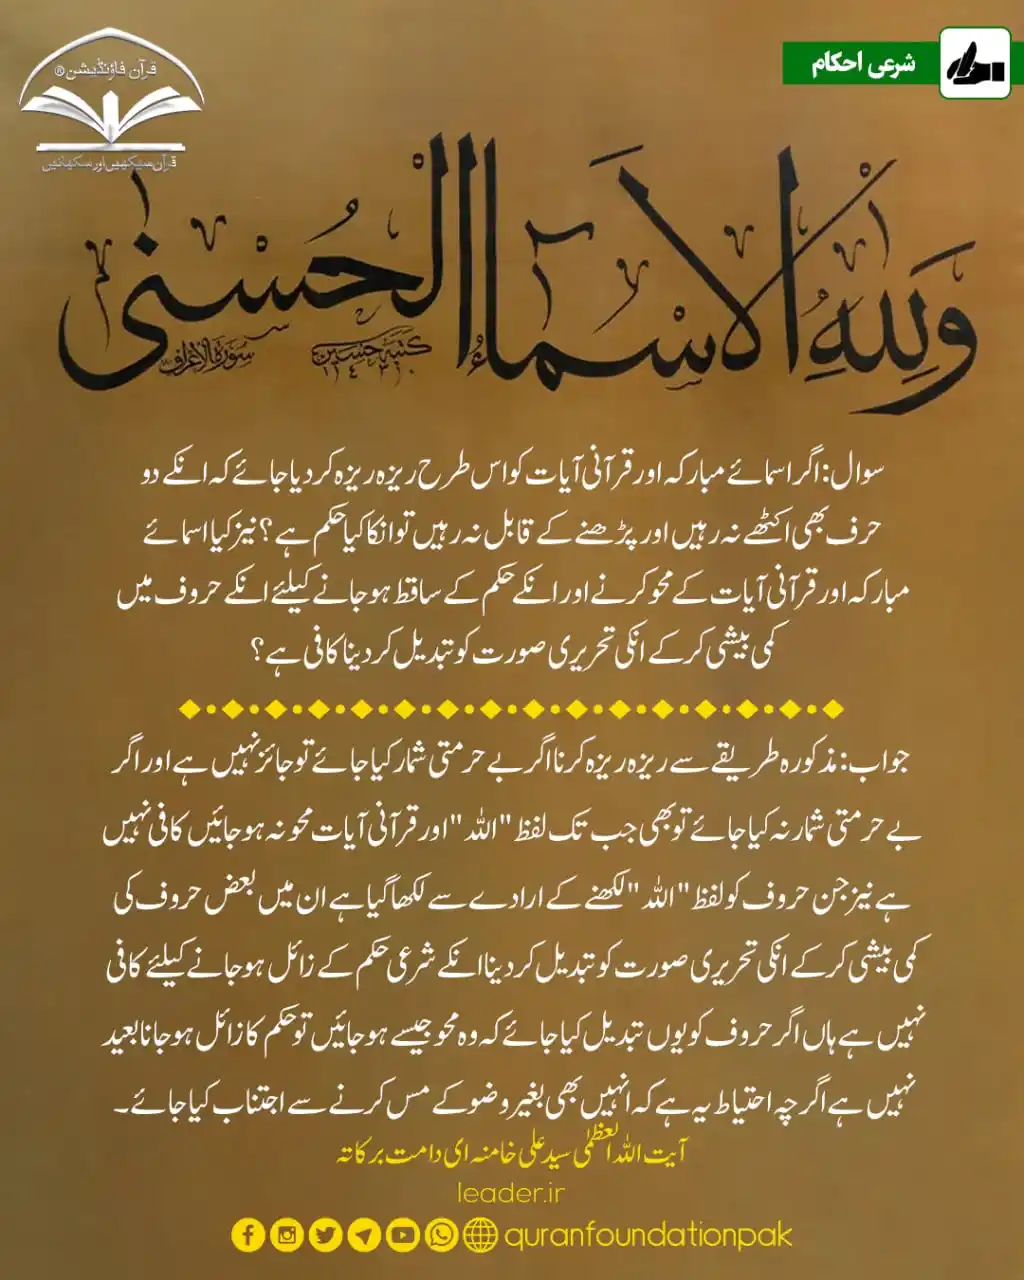 قرآن فاؤنڈیشن®
قرآن سیکھیں اور سکھائیں
شرعی احکام
وَلِلّٰهِ الْاَسْمَآءُ الْحُسْنٰى
كتبه حسين ١٤٢١
سورة الاعراف
سوال: اگر اسمائے مبارکہ اور قرآنی آیات کو اس طرح ریزہ ریزہ کر دیا جائے کہ انکے دو
حرف بھی اکٹھے نہ رہیں اور پڑھنے کے قابل نہ رہیں تو انکا کیا حکم ہے؟ نیز کیا اسمائے
مبارکہ اور قرآنی آیات کے محو کرنے اور انکے حکم کے ساقط ہو جانے کیلئے انکے حروف میں
کمی بیشی کر کے انکی تحریری صورت کو تبدیل کر دینا کافی ہے؟
جواب: مذکورہ طریقے سے ریزہ ریزہ کرنا اگر بے حرمتی شمار کیا جائے تو جائز نہیں ہے اور اگر
بے حرمتی شمار نہ کیا جائے تو بھی جب تک لفظ "اللہ" اور قرآنی آیات محو نہ ہو جائیں کافی نہیں
ہے نیز جن حروف کو لفظ "اللہ" لکھنے کے ارادے سے لکھا گیا ہے ان میں بعض حروف کی
کمی بیشی کر کے انکی تحریری صورت کو تبدیل کر دینا انکے شرعی حکم کے زائل ہو جانے کیلئے کافی
نہیں ہے ہاں اگر حروف کو یوں تبدیل کیا جائے کہ وہ محو جیسے ہو جائیں تو حکم کا زائل ہو جانا بعید
نہیں ہے اگرچہ احتیاط یہ ہے کہ انہیں بھی بغیر وضو کے مس کرنے سے اجتناب کیا جائے۔
آیت اللہ العظمٰی سید علی خامنہ ای دامت برکاتہ
leader.ir
quranfoundationpak